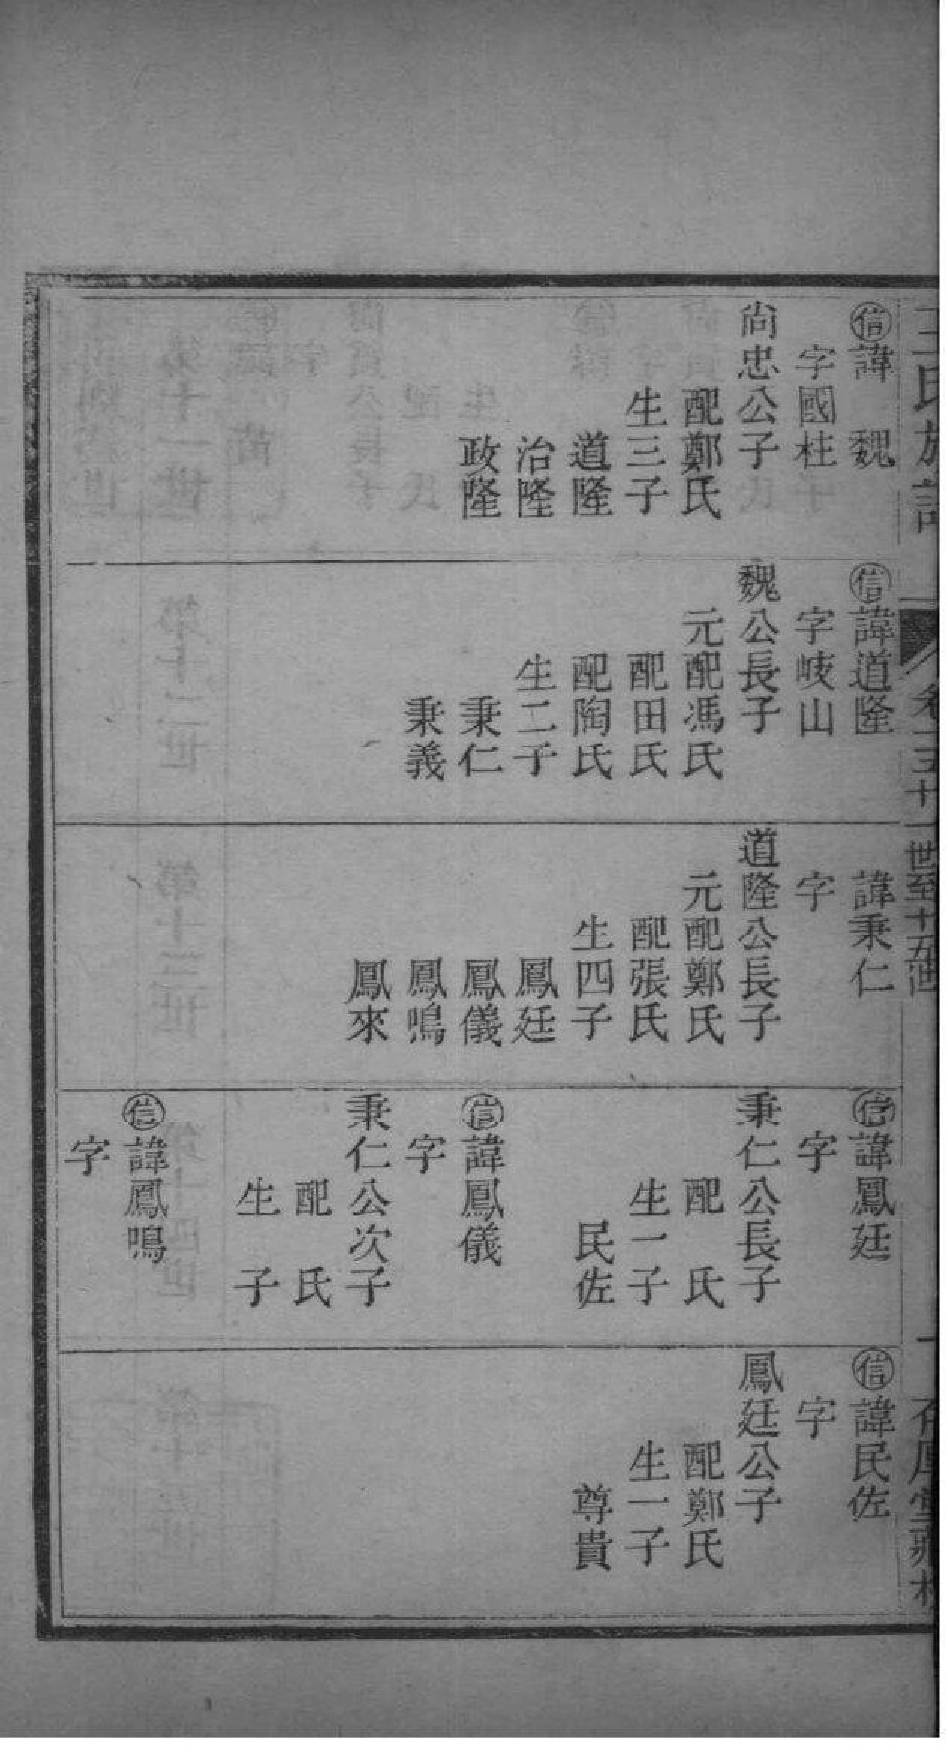 王氏族譜
卷
五十一世至十五世
㊞信諱魏
字國柱
尚忠公子
配鄭氏
生三子
道隆
治隆
政隆
信諱道隆
字岐山
魏公長子
元配馮氏
配田氏
配陶氏
生二子
秉仁
秉義
諱秉仁
字
道隆公長子
元配鄭氏
配張氏
生四子
鳳廷
鳳儀
鳳鳴
鳳來
信諱鳳廷
字
秉仁公長子
配 氏
生一子
民佐
信諱鳳儀
字
秉仁公次子
配 氏
生 子
信諱鳳鳴
字
信諱民佐
字
鳳廷公子
配鄭氏
生一子
尊貴